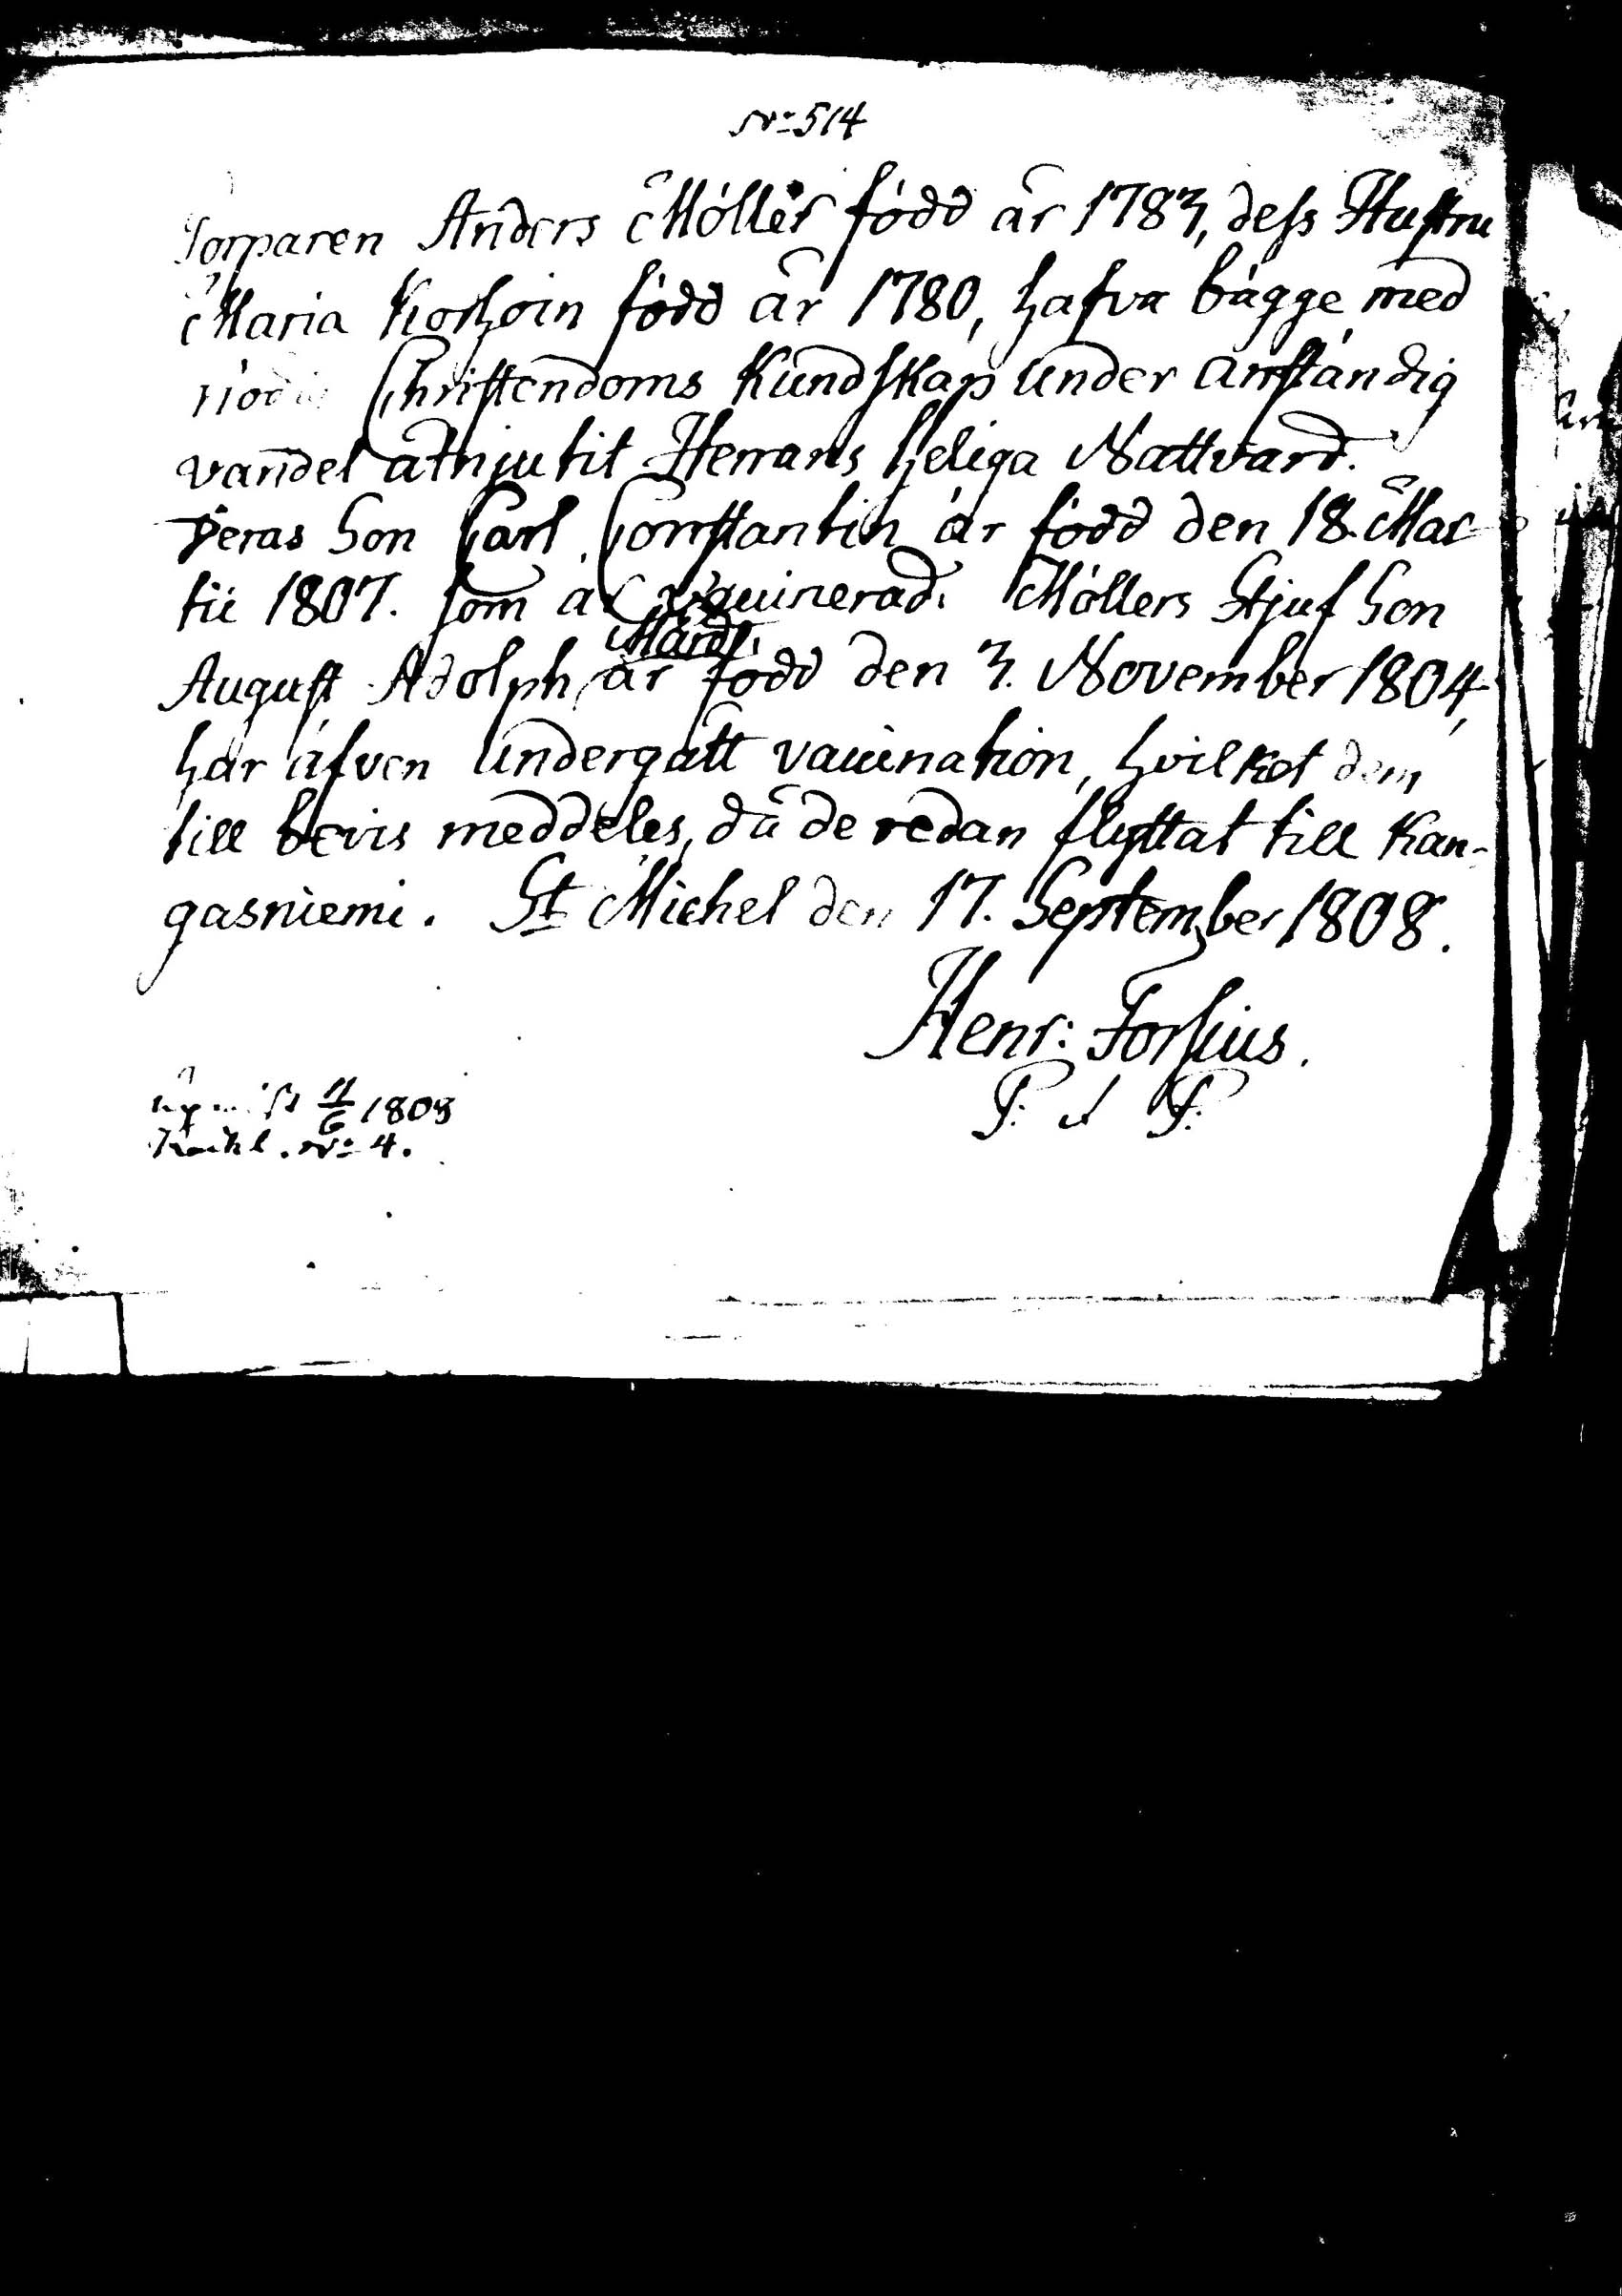 No 514
Torparen Anders Möller född år 1783, dess Hustru
Maria Korhoin född år 1780, hafva bägge med
nödig Christendoms Kundskap under anständig
vandel åtnjutit Herrans heliga Nattvard.
Deras Son Carl Constantin är född den 18. Mar-
tii 1807. som är vaccinerad. Möllers Stjuf Son
August Adolph är född den 3. November 1804,
har äfven undergått vaccination, hvilket dem
till bevis meddeles, då de redan flyttat till Kan-
gasniemi. St Michel den 17. September 1808.
Henr: Forsius.
11/6 1808
No 4.